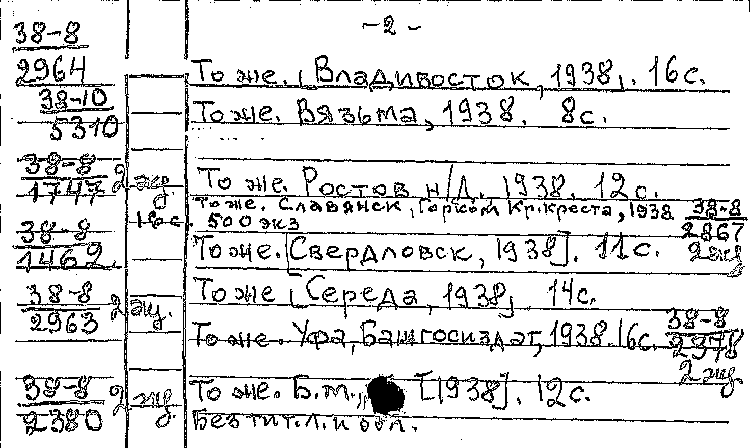 -2-
38-8
2964 То же. [Владивосток, 1938]. 16 с.
38-10
5310 То же. Вязьма, 1938. 8 с.
38-8
1747 2 экз. То же. Ростов н/Д. 1938. 12 с.
То же. Славянск, Горком Кр. креста, 1938 38-8
16 с. 500 экз 2867
2 экз
38-8
1462 То же. [Свердловск, 1938]. 11 с.
38-8
2963 2 экз. То же [Середа, 1938] 14 с.
То же. Уфа, Башгосиздат, 1938. 16 с. 38-8
2978
2 экз.
38-8
2380 2 экз. То же. Б.м., [1938]. 12 с.
Без тит. л. и обл.